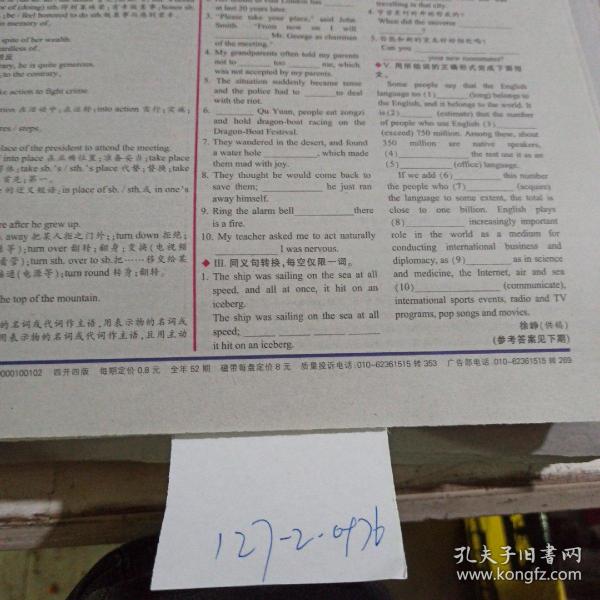 of (doing) sth.
in memory of.
spite of her wealth
regardless of.
he is quite generous.
to the contrary.
take action to fight crime
into action
/ steps.
place of the president to attend the meeting.
into place
is place of sb. / sth.或 in one's
after he grew up.
away 把某人拒之门外;turn down 拒绝;
turn over 翻转;翻身;变换(电视频
turn sth. over to sb.把……移交给某
turn round 转身;翻转。
the top of the mountain.
的名词或代词作主语,用表示物的名词或
用表示物的名词或代词作主语,且用主动
at last 20 years later.
3. "Please take your place," said John
Smith. "From now on I will
Mr. George as chairman
of the meeting."
4. My grandparents often told my parents
not to ______ too ______ me, which
was not accepted by my parents.
5. The situation suddenly became tense
and the police had to ______ to deal
with the riot.
6. ______ Qu Yuan, people eat zongzi
and hold dragon-boat racing on the
Dragon-Boat Festival.
7. They wandered in the desert, and found
a water hole ______, which made
them mad with joy.
8. They thought he would come back to
save them; ______ he just ran
away himself.
9. Ring the alarm bell ______ there
is a fire.
10. My teacher asked me to act naturally
______ I was nervous.
◆ III. 同义句转换,每空仅限一词。
1. The ship was sailing on the sea at all
speed, and all at once, it hit on an
iceberg.
The ship was sailing on the sea at all
speed; ______ ______ ______
it hit on an iceberg.
travelling in that city.
When did the universe
______?
Can you ______
______ your new roommates?
◆ V. 用所给词的正确形式完成下面短
文。
Some people say that the English
language no (1) ______ (long) belongs to
the English, and it belongs to the world. It
is (2) ______ (estimate) that the number
of people who use English (3) ______
(exceed) 750 million. Among these, about
350 million are native speakers,
(4) ______ the rest use it as an
(5) ______ (office) language.
If we add (6) ______ this number
the people who (7) ______ (acquire)
the language to some extent, the total is
close to one billion. English plays
(8) ______ increasingly important
role in the world as a medium for
conducting international business and
diplomacy, as (9) ______ as in science
and medicine, the Internet, air and sea
(10) ______ (communicate),
international sports events, radio and TV
programs, pop songs and movies.
徐峥(供稿)
(参考答案见下期)
0000100102 四开四版 每期定价0.8元 全年52期 磁带每盘定价8元 质量投诉电话:010-62361515转353 广告部电话:010-62361515转269
127-2-0436
孔夫子旧书网
www.kongfz.com